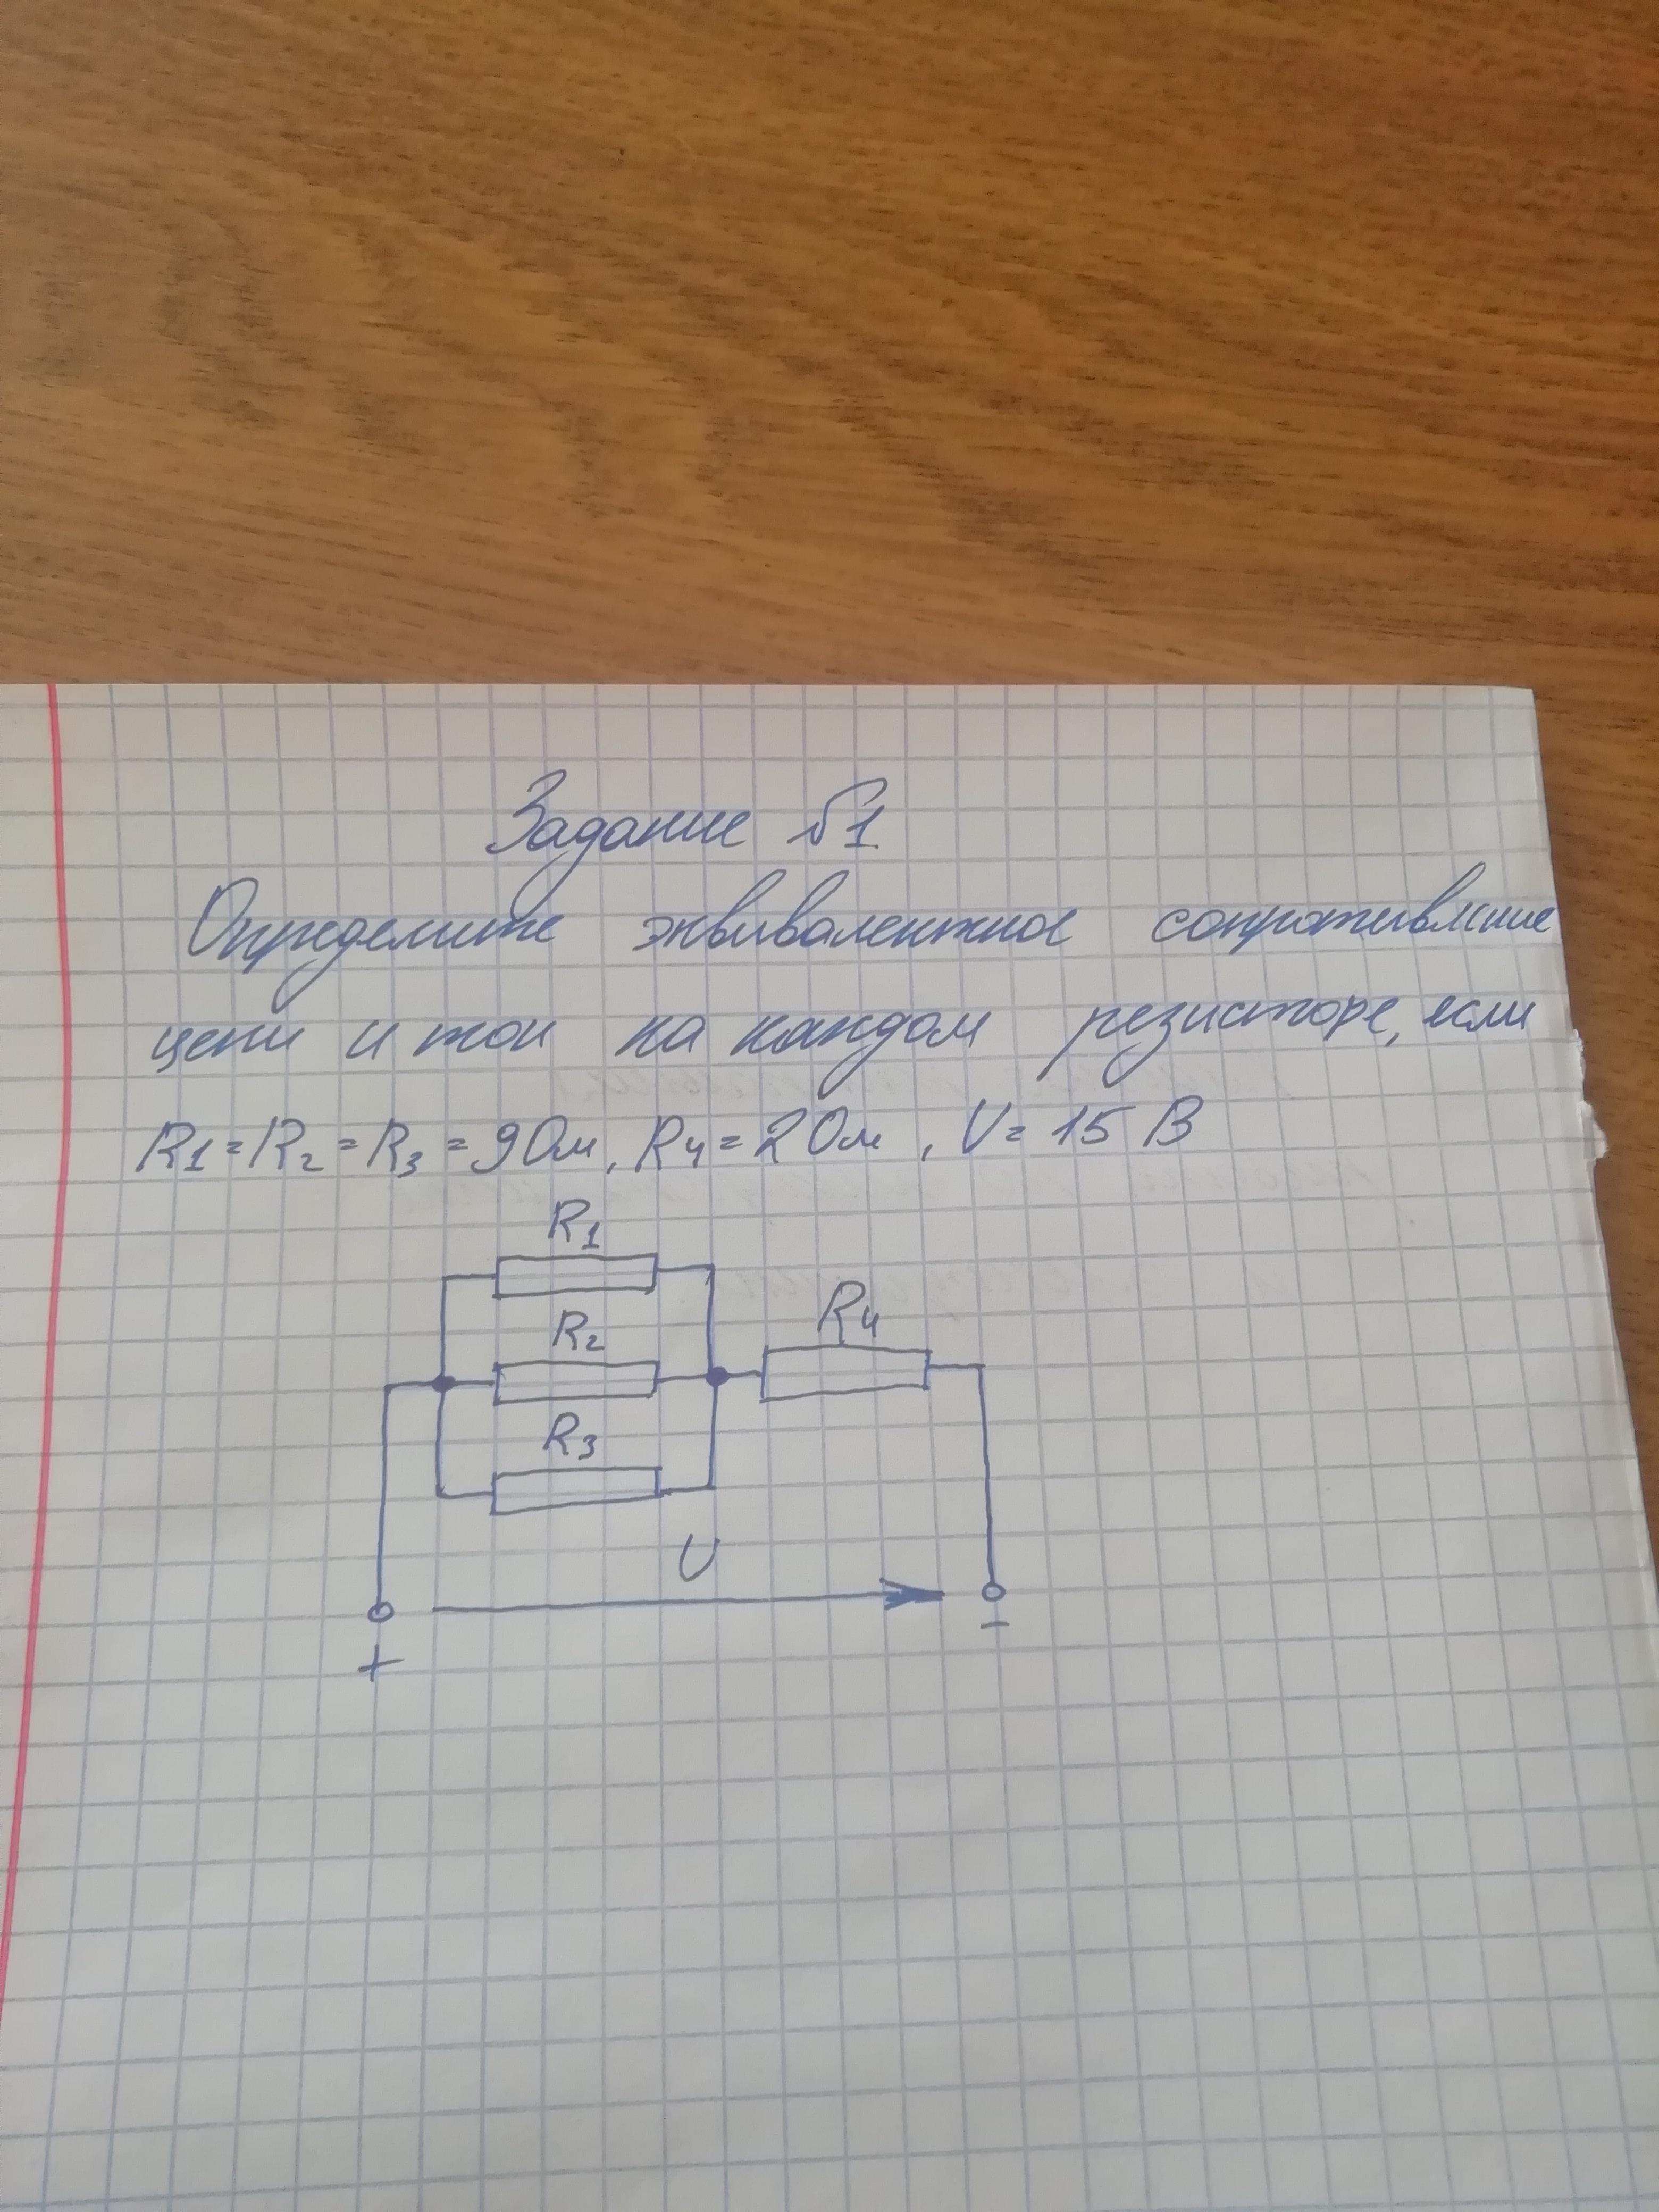 Задание №1
Определите эквивалентное сопротивление
цепи и ток на каждом резисторе, если
R1=R2=R3=9Ом, R4=2Ом, U=15 В
R1
R2
R4
R3
U
+
-